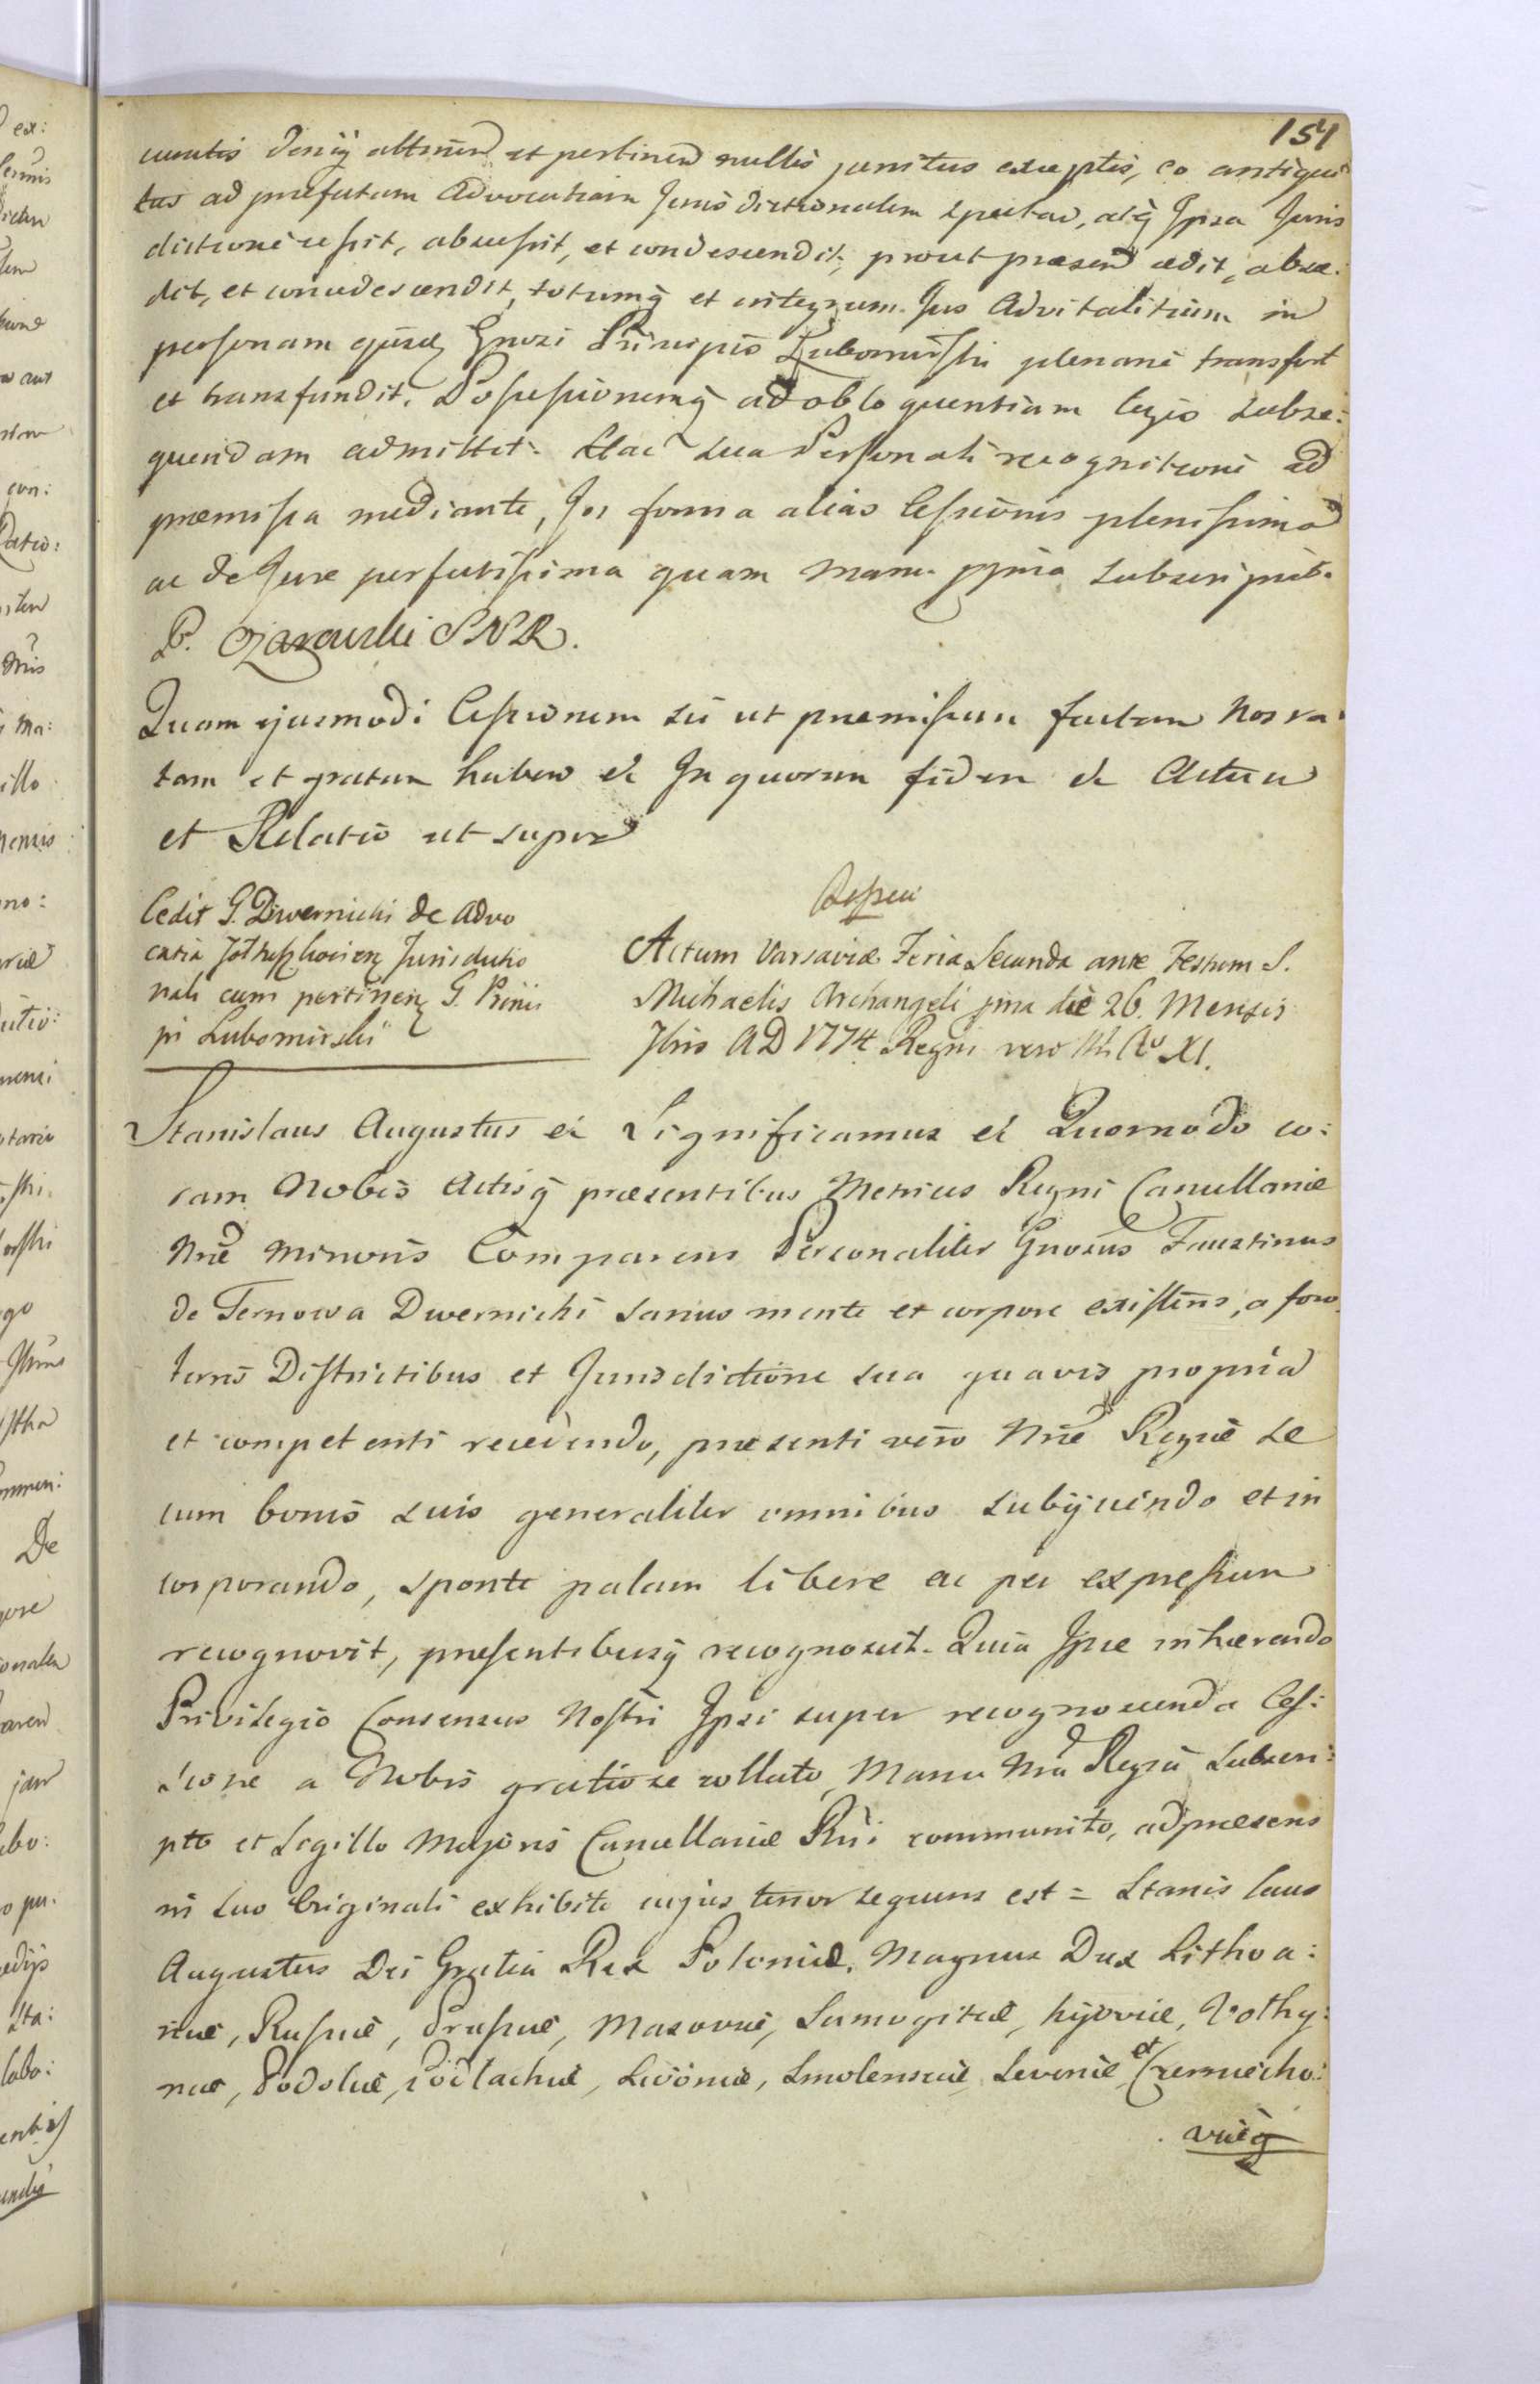 151
cuntis deniq attinen et pertinen nullis penitus exceptis, eo antiqui
tus ad præfatam Advocatiam Jurisdictionalem spectan, atq Ipsa Juris
dictione cessit, abscessit, et condescendit, prout præsen cedit, absce:
dit, et concdescendit, totumq et integrum Jus Advitalitium in
personam ejusd Gnosi Principis Lubomirski plenarie transfert
et transfundit. Possessionemq ad obloquentiam legis subse:
quendam admittet. Hac sua Personali recognitione ad
præmissa mediante, In forma alias Cessionis plenissima
ac de Jure perfectissima quam manu ppria subscripsit.
P. Ożarowski SNR.
Quam ejusmodi Cessionem sic ut præmissum factam Nos ra:
tam et gratam haben et In quorum fidem et Actum
et Relatio ut supra
Cedit G. Dwernicki de Advo
catia Jurisdictio
nali cum pertinen G. Princi
pi Lubomirski
Actum Varsaviæ Feria Secunda ante Festum S.
Michaelis Archangeli pma die 26. Mensis
7bris AD 1774 Regni vero Ao XI.
Stanislaus Augustus et Significamus et Quomodo co:
ram Nobis Actisq præsentibus Metrices Regni Cancellariæ
Nræ Minoris Comparens Personaliter Gnosus Faustinus
de Ternowa Dwernicki sanus mente et corpore existens, a foro
terris Districtibus et Jurisdictione sua quavis propria
et competenti recedendo, præsenti vero Nræ Regiæ se
cum bonis suis generaliter omnibus subijciendo et in
corporando, sponte palam libere ac per expressum
recognovit, præsentibusq recognoscit. Quia Ipse inhærendo
Privilegio Consensus Nostri Ipsi super recognoscenda Ces:
sione a Nobis gratiose collato, Manu Nra Regia subscri:
pto et Sigillo Majoris Cancellariæ Rni communito, ad præsens
in suo Originali exhibito cujus tenor sequens est = Stanislaus
Augustus Dei Gratia Rex Poloniæ, Magnus Dux Lithva:
niæ, Russiæ, Prussiæ, Masoviæ, Samogitiæ, Kijoviæ, Volhy:
niæ, Podoliæ, Podlachiæ, Livoniæ, Smolensciæ Severiæ et Czerniecho:
viæq